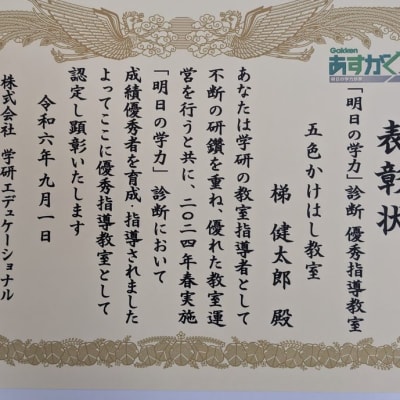 Gakken
あすがく
明日の学力診断
表彰状
「明日の学力」診断 優秀指導教室
五色かけはし教室
梯 健太郎 殿
あなたは学研の教室指導者として
不断の研鑽を重ね、優れた教室運
営を行うと共に、二〇二四年春実施
「明日の学力」診断において
成績優秀者を育成・指導されました
よってここに優秀指導教室として
認定し顕彰いたします
令和六年九月一日
株式会社 学研エデュケーショナル